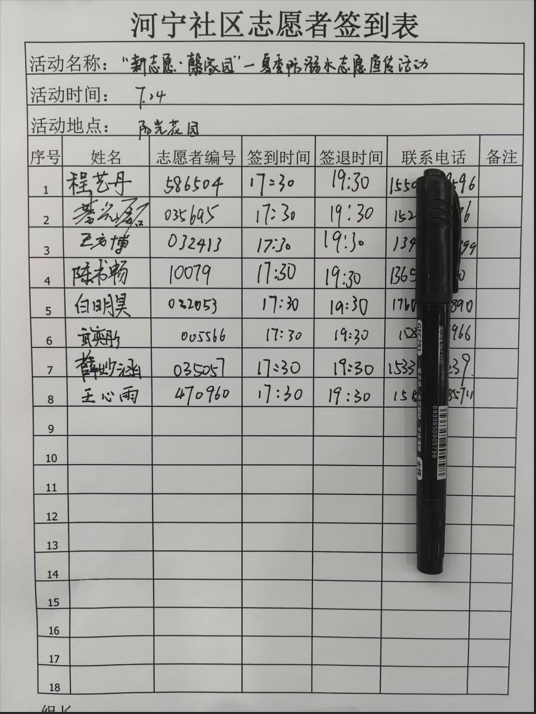 河宁社区志愿者签到表
活动名称: “新志愿·馨家园”—夏季防溺水志愿宣传活动
活动时间: 7.4
活动地点: 阳光花园
序号 姓名 志愿者编号 签到时间 签退时间 联系电话 备注
1 程艺丹 586504 17:30 19:30 1550 596
2 035695 17:30 19:30 152 6
3 王方博 032413 17:30 19:30 134 99
4 陈书畅 10079 17:30 19:30 1365 0
5 白明昊 022053 17:30 19:30 1760 890
6 005566 17:30 19:30 15 966
7 薛妙涵 035057 17:30 19:30 1533 39
8 王心雨 470960 17:30 19:30 15 8571
9
10
11
12
13
14
15
16
17
18
组长